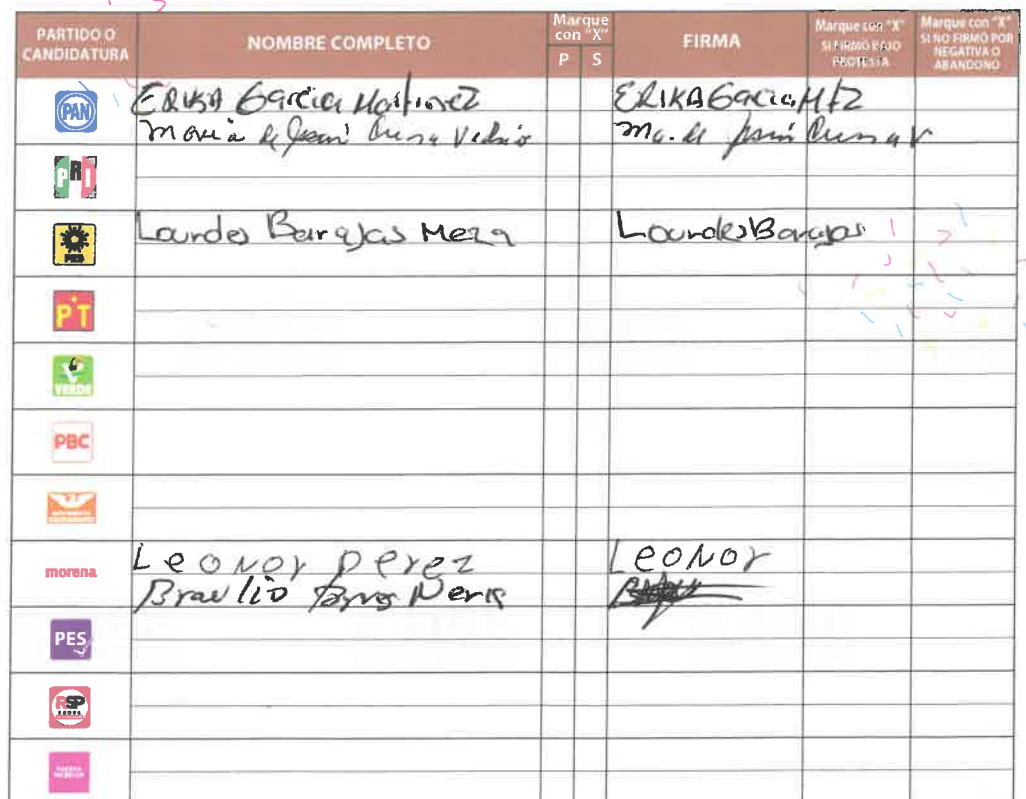 PARTIDO O CANDIDATURA
NOMBRE COMPLETO
Marque con "X"
P S
FIRMA
Marque con "X" SI FIRMÓ BAJO PROTESTA
Marque con "X" SI NO FIRMÓ POR NEGATIVA O ABANDONO
PAN
ERIKA García Martínez
ERIKA García Mtz
María de Jesús
Ma. de Jesús
PRI
PRD
Lourdes Barajas Meza
Lourdes Barajas
PT
VERDE
PBC
MOVIMIENTO CIUDADANO
morena
Leonor perez
Leonor
Braulio
PES
RSP